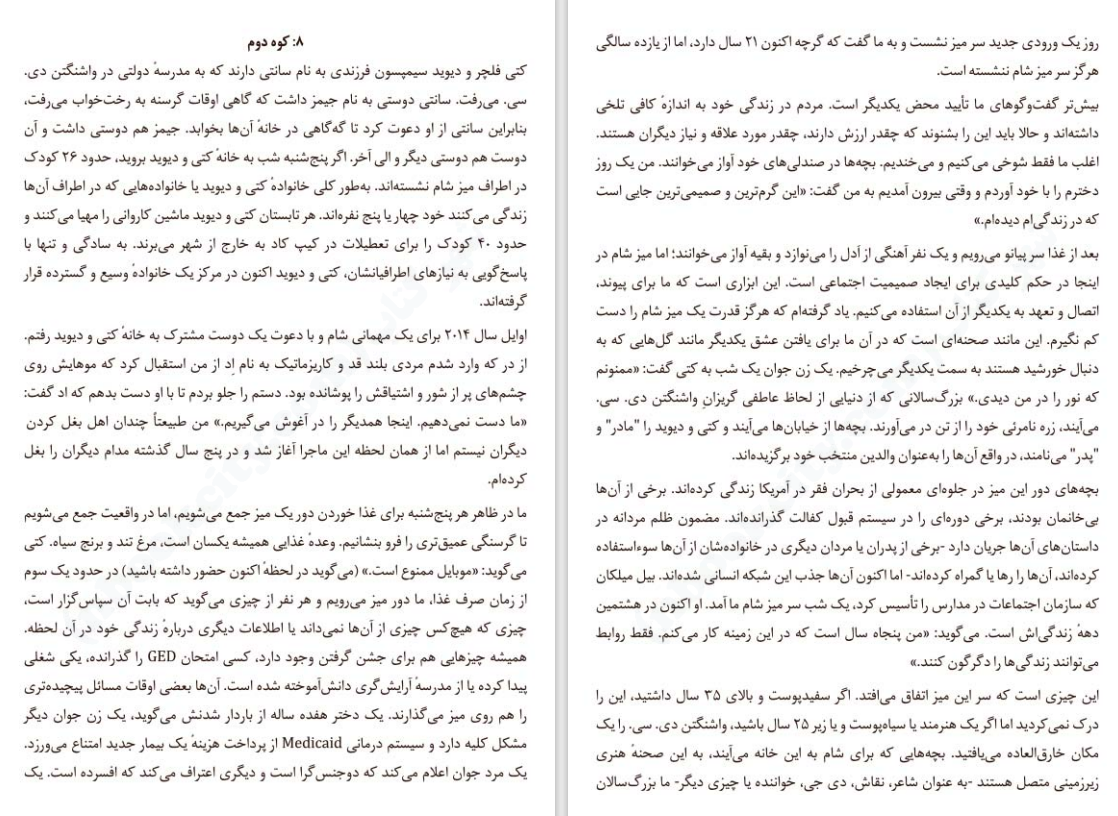 ۸: کوه دوم
کتی فلچر و دیوید سیمپسون فرزندی به نام سانتی دارند که به مدرسهٔ دولتی در واشنگتن دی.
سی. می‌رفت. سانتی دوستی به نام جیمز داشت که گاهی اوقات گرسنه به رخت‌خواب می‌رفت،
بنابراین سانتی از او دعوت کرد تا گه‌گاهی در خانهٔ آن‌ها بخوابد. جیمز هم دوستی داشت و آن
دوست هم دوستی دیگر و الی آخر. اگر پنج‌شنبه شب به خانهٔ کتی و دیوید بروید، حدود ۲۶ کودک
در اطراف میز شام نشسته‌اند. به‌طور کلی خانوادهٔ کتی و دیوید یا خانواده‌هایی که در اطراف آن‌ها
زندگی می‌کنند خود چهار یا پنج نفره‌اند. هر تابستان کتی و دیوید ماشین کاروانی را مهیا می‌کنند و
حدود ۴۰ کودک را برای تعطیلات در کیپ کاد به خارج از شهر می‌برند. به سادگی و تنها با
پاسخ‌گویی به نیازهای اطرافیانشان، کتی و دیوید اکنون در مرکز یک خانوادهٔ وسیع و گسترده قرار
گرفته‌اند.
اوایل سال ۲۰۱۴ برای یک مهمانی شام و با دعوت یک دوست مشترک به خانهٔ کتی و دیوید رفتم.
از در که وارد شدم مردی بلند قد و کاریزماتیک به نام اِد از من استقبال کرد که موهایش روی
چشم‌های پر از شور و اشتیاقش را پوشانده بود. دستم را جلو بردم تا با او دست بدهم که اد گفت:
«ما دست نمی‌دهیم. اینجا همدیگر را در آغوش می‌گیریم.» من طبیعتاً چندان اهل بغل کردن
دیگران نیستم اما از همان لحظه این ماجرا آغاز شد و در پنج سال گذشته مدام دیگران را بغل
کرده‌ام.
ما در ظاهر هر پنج‌شنبه برای غذا خوردن دور یک میز جمع می‌شویم، اما در واقعیت جمع می‌شویم
تا گرسنگی عمیق‌تری را فرو بنشانیم. وعدهٔ غذایی همیشه یکسان است، مرغ تند و برنج سیاه. کتی
می‌گوید: «موبایل ممنوع است.» (می‌گوید در لحظهٔ اکنون حضور داشته باشید) در حدود یک سوم
از زمان صرف غذا، ما دور میز می‌رویم و هر نفر از چیزی می‌گوید که بابت آن سپاس‌گزار است،
چیزی که هیچ‌کس چیزی از آن‌ها نمی‌داند یا اطلاعات دیگری دربارهٔ زندگی خود در آن لحظه.
همیشه چیزهایی هم برای جشن گرفتن وجود دارد، کسی امتحان GED را گذرانده، یکی شغلی
پیدا کرده یا از مدرسهٔ آرایش‌گری دانش‌آموخته شده است. آن‌ها بعضی اوقات مسائل پیچیده‌تری
را هم روی میز می‌گذارند. یک دختر هفده ساله از باردار شدنش می‌گوید، یک زن جوان دیگر
مشکل کلیه دارد و سیستم درمانی Medicaid از پرداخت هزینهٔ یک بیمار جدید امتناع می‌ورزد.
یک مرد جوان اعلام می‌کند که دوجنس‌گرا است و دیگری اعتراف می‌کند که افسرده است. یک
روز یک ورودی جدید سر میز نشست و به ما گفت که گرچه اکنون ۲۱ سال دارد، اما از یازده سالگی
هرگز سر میز شام ننشسته است.
بیش‌تر گفت‌وگوهای ما تأیید محض یکدیگر است. مردم در زندگی خود به اندازهٔ کافی تلخی
داشته‌اند و حالا باید این را بشنوند که چقدر ارزش دارند، چقدر مورد علاقه و نیاز دیگران هستند.
اغلب ما فقط شوخی می‌کنیم و می‌خندیم. بچه‌ها در صندلی‌های خود آواز می‌خوانند. من یک روز
دخترم را با خود آوردم و وقتی بیرون آمدیم به من گفت: «این گرم‌ترین و صمیمی‌ترین جایی است
که در زندگی‌ام دیده‌ام.»
بعد از غذا سر پیانو می‌رویم و یک نفر آهنگی از آدل را می‌نوازد و بقیه آواز می‌خوانند؛ اما میز شام در
اینجا در حکم کلیدی برای ایجاد صمیمیت اجتماعی است. این ابزاری است که ما برای پیوند،
اتصال و تعهد به یکدیگر از آن استفاده می‌کنیم. یاد گرفته‌ام که هرگز قدرت یک میز شام را دست
کم نگیرم. این مانند صحنه‌ای است که در آن ما برای یافتن عشق یکدیگر مانند گل‌هایی که به
دنبال خورشید هستند به سمت یکدیگر می‌چرخیم. یک زن جوان یک شب به کتی گفت: «ممنونم
که نور را در من دیدی.» بزرگ‌سالانی که از دنیایی از لحاظ عاطفی گریزانِ واشنگتن دی. سی.
می‌آیند، زره نامرئی خود را از تن در می‌آورند. بچه‌ها از خیابان‌ها می‌آیند و کتی و دیوید را "مادر" و
"پدر" می‌نامند، در واقع آن‌ها را به‌عنوان والدین منتخب خود برگزیده‌اند.
بچه‌های دور این میز در جلوه‌ای معمولی از بحران فقر در آمریکا زندگی کرده‌اند. برخی از آن‌ها
بی‌خانمان بودند، برخی دوره‌ای را در سیستم قبول کفالت گذرانده‌اند. مضمون ظلم مردانه در
داستان‌های آن‌ها جریان دارد -برخی از پدران یا مردان دیگری در خانواده‌شان از آن‌ها سوءاستفاده
کرده‌اند، آن‌ها را رها یا گمراه کرده‌اند- اما اکنون آن‌ها جذب این شبکه انسانی شده‌اند. بیل میلکان
که سازمان اجتماعات در مدارس را تأسیس کرد، یک شب سر میز شام ما آمد. او اکنون در هشتمین
دههٔ زندگی‌اش است. می‌گوید: «من پنجاه سال است که در این زمینه کار می‌کنم. فقط روابط
می‌توانند زندگی‌ها را دگرگون کنند.»
این چیزی است که سر این میز اتفاق می‌افتد. اگر سفیدپوست و بالای ۳۵ سال داشتید، این را
درک نمی‌کردید اما اگر یک هنرمند یا سیاه‌پوست و یا زیر ۲۵ سال باشید، واشنگتن دی. سی. را یک
مکان خارق‌العاده می‌یافتید. بچه‌هایی که برای شام به این خانه می‌آیند، به این صحنهٔ هنری
زیرزمینی متصل هستند -به عنوان شاعر، نقاش، دی جی، خواننده یا چیزی دیگر- ما بزرگ‌سالان